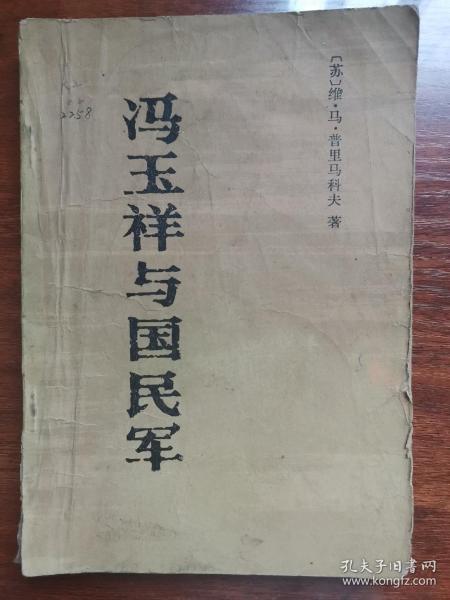 〔苏〕维·马·普里马科夫 著
冯玉祥与国民军
2258
孔夫子旧书网
www.kongfz.com